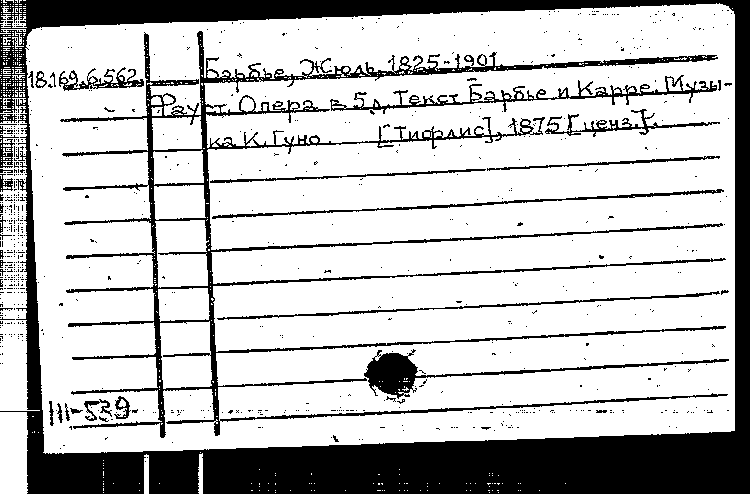 18.169.6.562. Барбье, Жюль, 1825-1901.
Фауст. Опера в 5 д. Текст Барбье и Карре. Музы-
ка К. Гуно. [Тифлис], 1875 [ценз.].
III-539